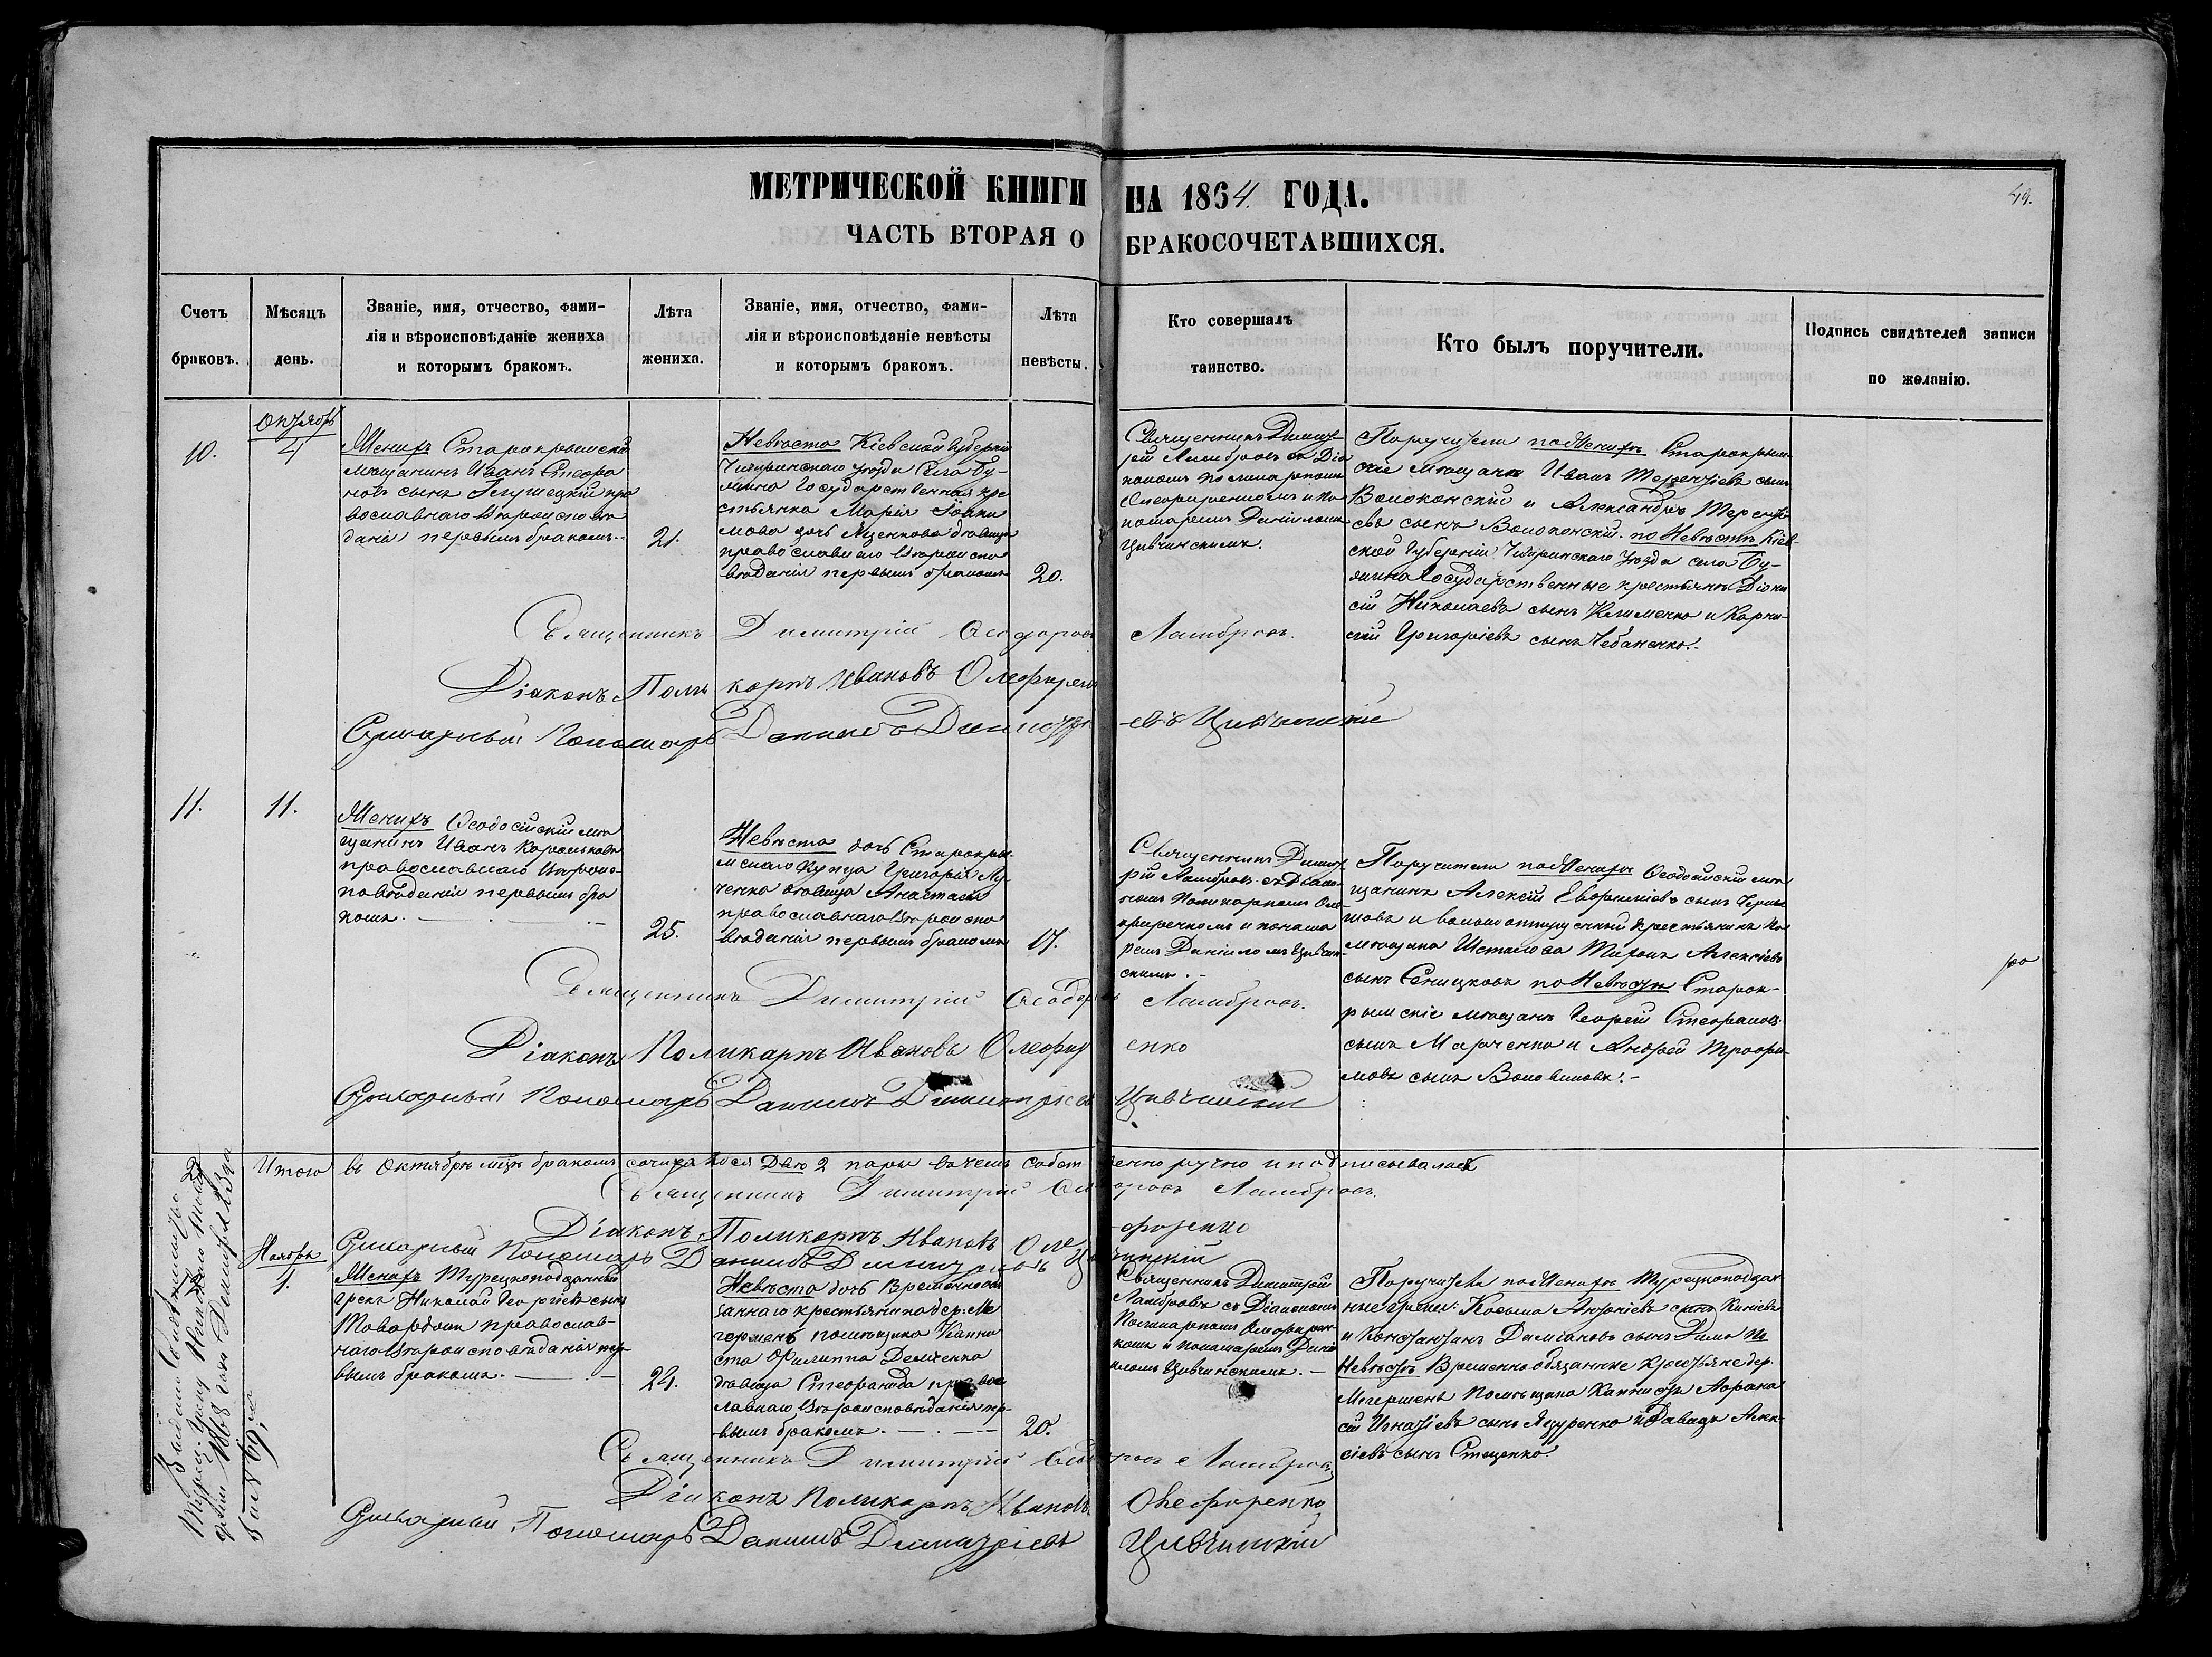 МЕТРИЧЕСКОЙ КНИГИ НА 1864 ГОДА.
49.
ЧАСТЬ ВТОРАЯ О БРАКОСОЧЕТАВШИХСЯ.
Счетъ
браковъ.
Мѣсяцъ
день.
Званіе, имя, отчество, фами-
лія и вѣроисповѣданіе жениха
и которымъ бракомъ.
Лѣта
жениха.
Званіе, имя, отчество, фами-
лія и вѣроисповѣданіе невѣсты
и которымъ бракомъ.
Лѣта
невѣсты.
Кто совершалъ
таинство.
Кто былъ поручители.
Подпись свидѣтелей записи
по желанію.
10.
Октябрь
4
Женихъ Старокрымскій
мѣщанинъ Иванъ Стефа
новъ сынъ пра
вославнаго вѣроисповѣ
данія первымъ бракомъ.
21.
Невѣста Кіевской губерніи
Чигиринскаго уѣзда села Бу-
жина Государственная кре
стьянка Марія Іоаки
мова дочь Яценкова дѣвица
православнаго вѣроиспо
вѣданія первымъ бракомъ
20.
Священникъ Димит-
рій Ламбровъ съ Діа
кономъ Поликарпомъ
Олефиренкомъ и по
номаремъ Даніиломъ
Цивчинскимъ.
Поручители по Женихѣ Старокрым-
скіе мѣщане Иванъ Терентіевъ сынъ
Волоконскій и Александръ Терентi-
евъ сынъ Волоконскій. по Невѣстѣ Кіев-
ской Губерніи Чигиринскаго уѣзда села Бу-
жина Государственные крестьяне Діони
сій Николаевъ сынъ Клименко и Корни-
лій Григоріевъ сынъ Чебаненко.
Священникъ Димитрій Ѳеодоровъ Ламбровъ.
Діаконъ Поликарпъ Ивановъ Олефирен
Пономарь Даниилъ Димитріевъ Цивчинскій
11.
11.
Женихъ Ѳеодосійскій мѣ
щанинъ Иванъ Корольковъ
православнаго вѣроис-
повѣданія первымъ бра
комъ.
25.
Невѣста дочь Старокры-
мскаго Купца Григорія Лу-
ченка дѣвица Анастасія
православнаго вѣроиспо
вѣданія первымъ бракомъ
17.
Священникъ Димит
рій Ламбровъ съ Діако-
номъ Поликарпомъ Оле-
фиренкомъ и понома
ремъ Даніиломъ Цивчин-
скимъ.
Поручители по Женихѣ Ѳеодосійскій мѣ
щанинъ Алексій сынъ
и вольноотпущенный крестьянинъ по
мѣщика Шеталова Тихонъ Алексіевъ
сынъ Сеницковъ по Невѣстѣ Старок-
рымскіе мѣщане Георгій Стефановъ
сынъ Марченко и Андрей Трофи-
мовъ сынъ Воловиковъ.
Священникъ Димитрій Ѳеодоровъ Ламбровъ.
Діаконъ Поликарпъ Ивановъ Олефиренко
Пономарь Даниилъ Димитріевъ Цивчинскій
Итого въ Октябрѣ м-цѣ бракомъ сочеталося Двѣ 2 пары въ чемъ собственноручно и подписывались
Священникъ Димитрій Ѳеодоровъ Ламбровъ.
Діаконъ Поликарпъ Ивановъ Олефиренко
Пономарь Даниилъ Димитріевъ Цивчинскій
Ноябрь
1.
Женихъ Турецкоподданный
грекъ Николай Георгіевъ сынъ
православ-
наго вѣроисповѣданія пер-
вымъ бракомъ.
24.
Невѣста дочь Временнообя
заннаго крестьянина дер. Ме
герменъ помѣщика Капни
ста Филиппа Демченка
дѣвица Стефанида право
славнаго вѣроисповѣданія пер-
вымъ бракомъ.
20.
Священникъ Димитрій
Ламбровъ съ Діакономъ
Поликарпомъ Олефирен-
комъ и пономаремъ Дани
иломъ Цивчинскимъ.
Поручители по Женихѣ Турецкоподдан
ные греки: Косьма Антоніевъ сынъ
и Константинъ Даміановъ сынъ Дима по
Невѣстѣ Временнообязанные крестьяне дер.
Мегерменъ помѣщика Капниста Афана
сій Игнатіевъ сынъ Яцуренко и Давидъ Алек-
сіевъ сынъ Стеценко.
Священникъ Димитрій Ѳеодоровъ Ламбровъ
Діаконъ Поликарпъ Ивановъ Олефиренко
Пономарь Даниилъ Димитріевъ Цивчинскій
1868 года Декабря 23 дня
за № 69.